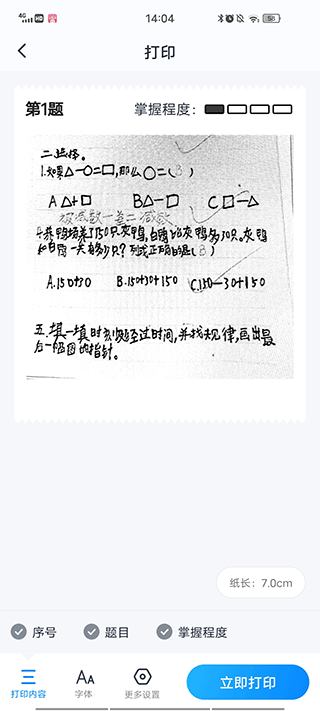 4G HD 14:04 58
打印
第1题 掌握程度：
二.选择。
1.如果△-○=□,那么○=(B)
A△+□ B△-□ C□-△
被减数-差=减数
4.养鸭场养了150只灰鸭,白鸭比灰鸭多30只。灰鸭
和白鸭一共有多少只?列式正确的是(B)
A.150+30 B.150+30+150 C.150-30+150
五.填一填时刻或经过时间,并找规律,画出最
后一幅图的指针。
纸长：7.0cm
序号 题目 掌握程度
打印内容 字体 更多设置 立即打印